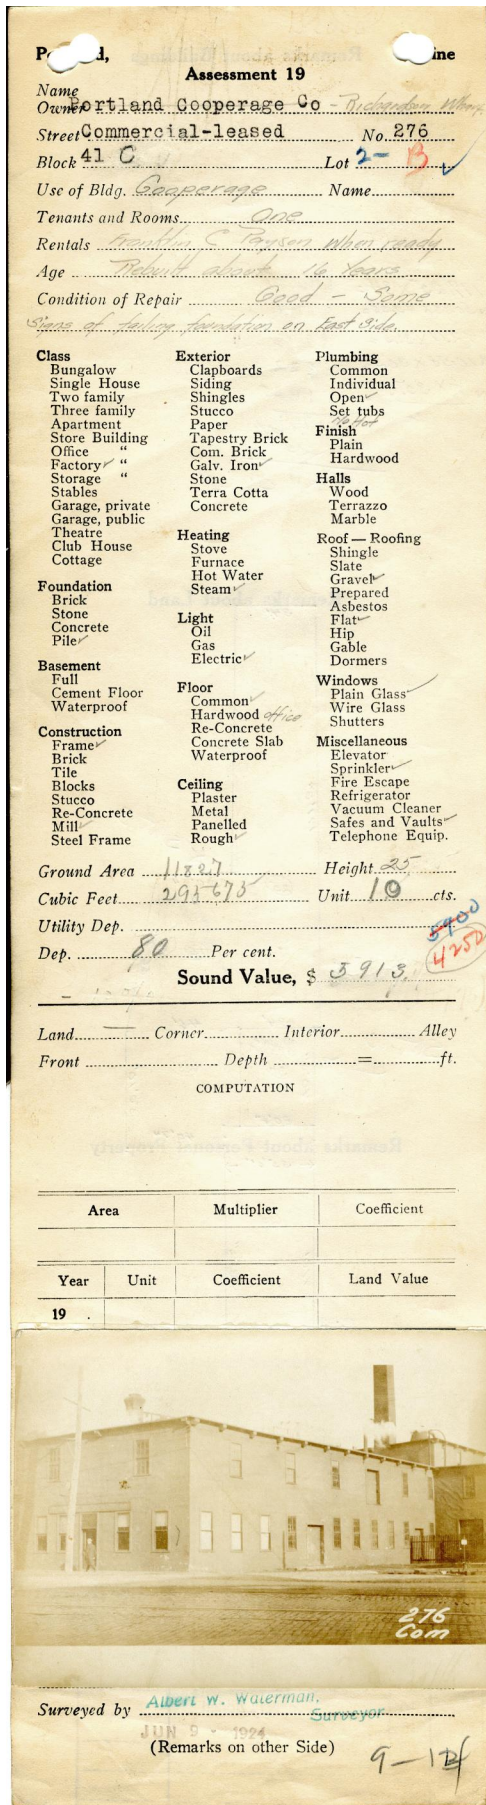 P    d,    ine
Assessment 19
Name
Owner Portland Cooperage Co - Richardson Wharf
Street Commercial-leased No. 276
Block 41 C Lot 2- B
Use of Bldg. Cooperage Name
Tenants and Rooms One
Rentals Franklin C Payson when ready
Age Rebuilt about 16 Years
Condition of Repair Good - Some
Signs of failing foundation on East Side.
Class
Bungalow
Single House
Two family
Three family
Apartment
Store Building
Office "
Factory ✓ "
Storage "
Stables
Garage, private
Garage, public
Theatre
Club House
Cottage
Foundation
Brick
Stone
Concrete
Pile ✓
Basement
Full
Cement Floor
Waterproof
Construction
Frame ✓
Brick
Tile
Blocks
Stucco
Re-Concrete
Mill ✓
Steel Frame
Exterior
Clapboards
Siding
Shingles
Stucco
Paper
Tapestry Brick
Com. Brick
Galv. Iron ✓
Stone
Terra Cotta
Concrete
Heating
Stove
Furnace
Hot Water
Steam ✓
Light
Oil
Gas
Electric ✓
Floor
Common ✓
Hardwood office
Re-Concrete
Concrete Slab
Waterproof
Ceiling
Plaster
Metal
Panelled
Rough ✓
Plumbing
Common
Individual
Open ✓
Set tubs
No Hot
Finish
Plain
Hardwood
Halls
Wood
Terrazzo
Marble
Roof — Roofing
Shingle
Slate
Gravel ✓
Prepared
Asbestos
Flat ✓
Hip
Gable
Dormers
Windows
Plain Glass ✓
Wire Glass
Shutters
Miscellaneous
Elevator
Sprinkler ✓
Fire Escape
Refrigerator
Vacuum Cleaner
Safes and Vaults ✓
Telephone Equip.
Ground Area 11827 Height 25
Cubic Feet 295675 Unit 10 cts.
Utility Dep.
5900
Dep. 80 Per cent. 4250
Sound Value, $ 5913
Land Corner Interior Alley
Front Depth = ft.
COMPUTATION
Area Multiplier Coefficient
Year Unit Coefficient Land Value
19 .
276
Com
Surveyed by Albert W. Waterman,
Surveyor
JUN 9 - 1924
(Remarks on other Side)